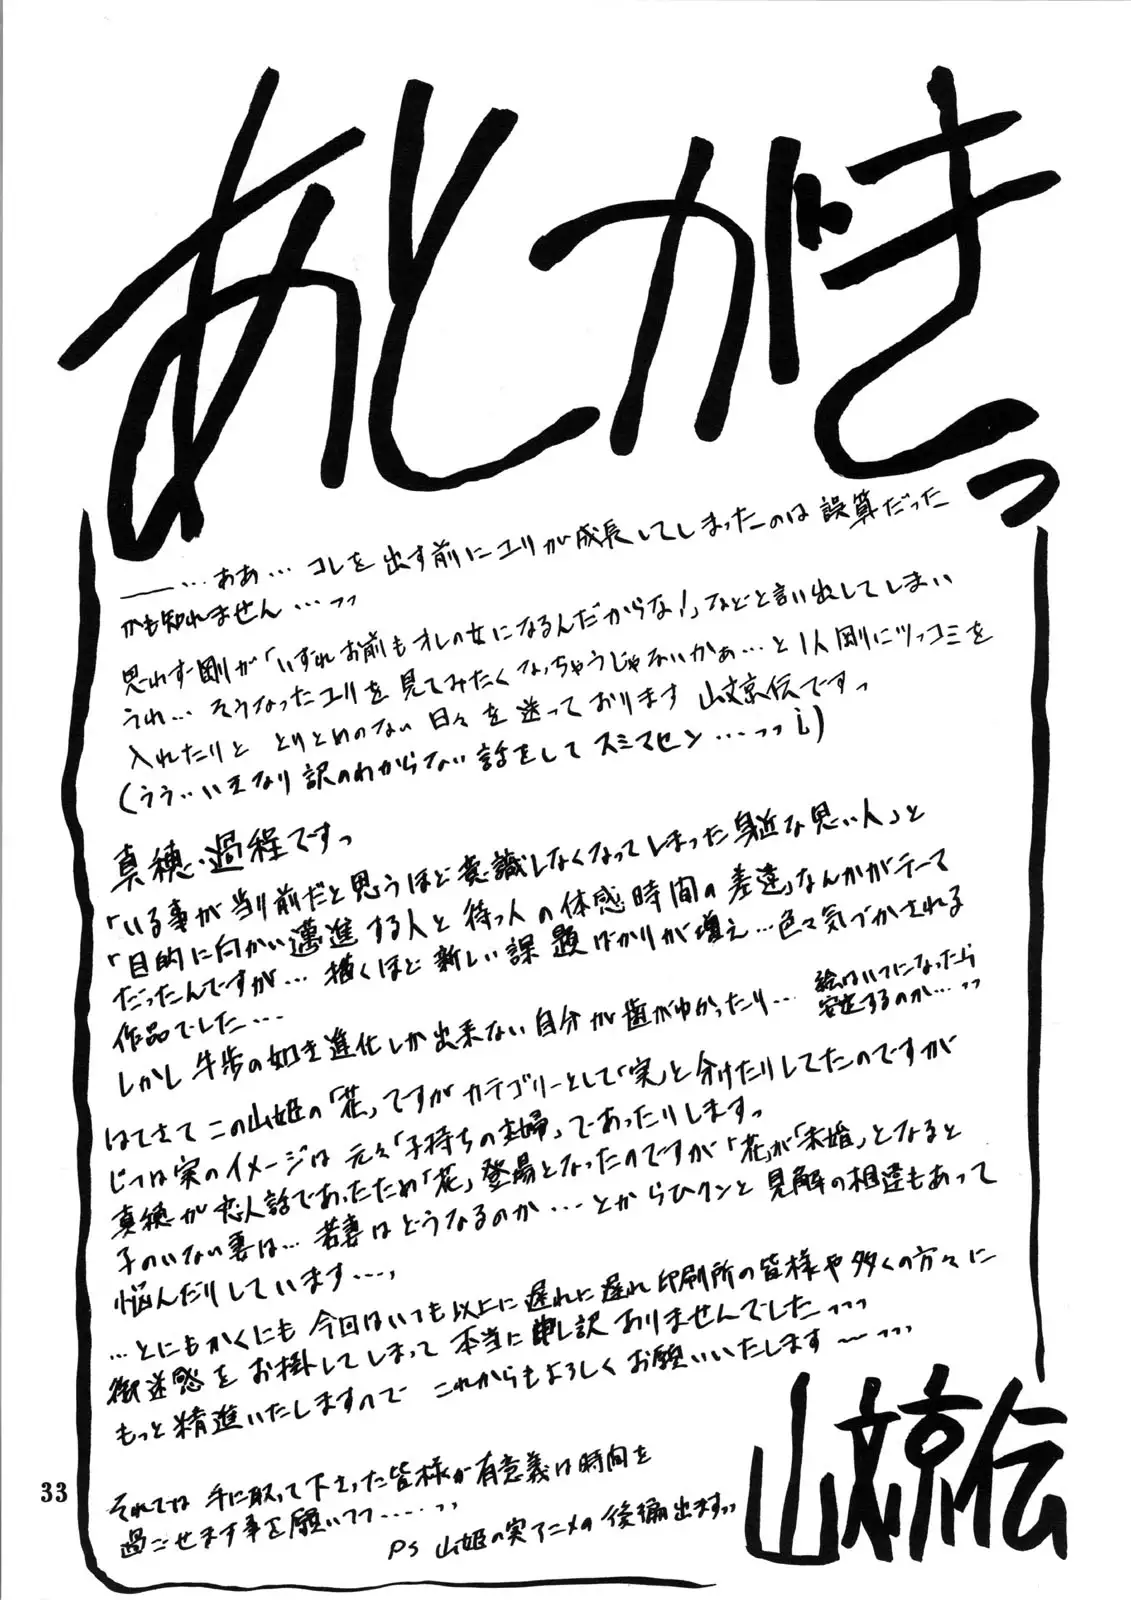 あとがきっ
――…ああ…コレを出す前にユリが成長してしまったのは誤算だった
かも知れません…っっ
思わず剛が「いずれお前もオレの女になるんだからな!」などと言い出してしまい
うれ…そうなったユリを見てみたくなっちゃうじゃないかぁ…と1人剛にツッコミを
入れたりと とりとめのない日々を送っております 山文京伝ですっ
(うう…いきなり訳のわからない話をしてスミマセン…っっ¡)
真穂・過程ですっ
「いる事が当り前だと思うほど意識しなくなってしまった身近な思い人」と
「目的に向かい邁進する人と待つ人の体感時間の差違」なんかがテーマ
だったんですが…描くほど新しい課題ばかりが増え…色々気づかされる
作品でした…
しかし牛歩の如き進化しか出来ない自分が歯がゆかったり…
絵はいつになったら
安定するのか…っっ
はてさてこの山姫の「花」ですがカテゴリーとして「実」と分けたりしてたのですが
じつは実のイメージは元々「子持ちの主婦」であったりしますっ
真穂が恋人話であったため「花」登場となったのですが「花」が「未婚」となると
子のいない妻は…若妻はどうなるのか…とからひクンと見解の相違もあって
悩んだりしています…
…ともかくにも今回はいつも以上に遅れに遅れ印刷所の皆様や多くの方々に
御迷惑をお掛してしまって本当に申し訳ありませんでしたっっ
もっと精進いたしますので これからもよろしくお願いいたします〜っっ
それでは 手に取って下さった皆様が有意義な時間を
過ごせます事を願いつつ……っっ
PS 山姫の実アニメの後編出ますっっ
山文京伝
33